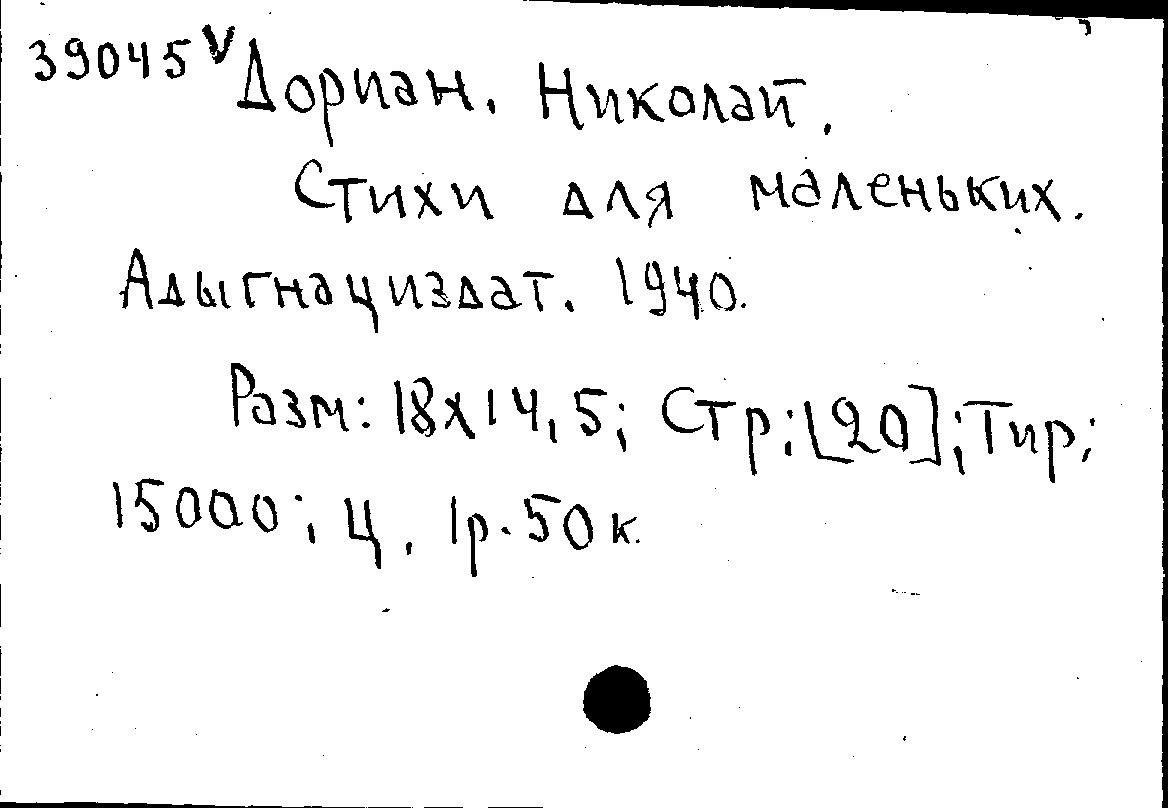 39045 V Дориан. Николай.
Стихи для маленьких.
Адыгнациздат. 1940.
Разм: 18х14,5; Стр; [20]; Тир;
15000; Ц. 1р. 50к.